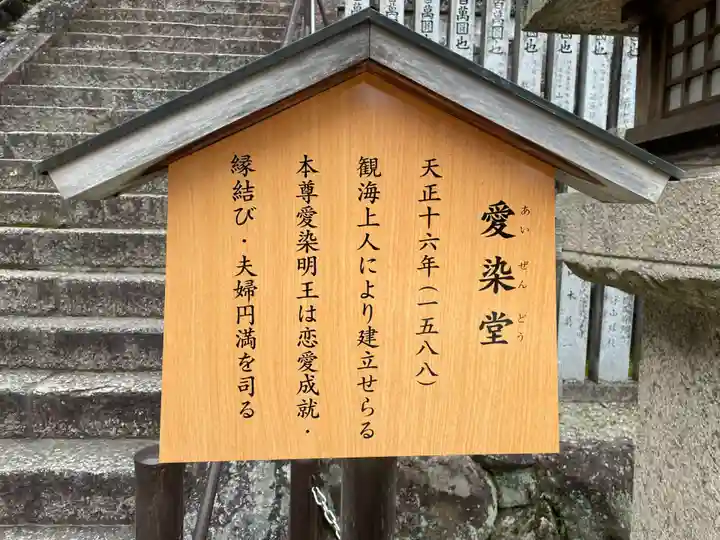 愛染堂
あいぜんどう
天正十六年(一五八八)
観海上人により建立せらる
本尊愛染明王は恋愛成就・
縁結び・夫婦円満を司る
百萬圓也
百萬圓也
百萬圓也